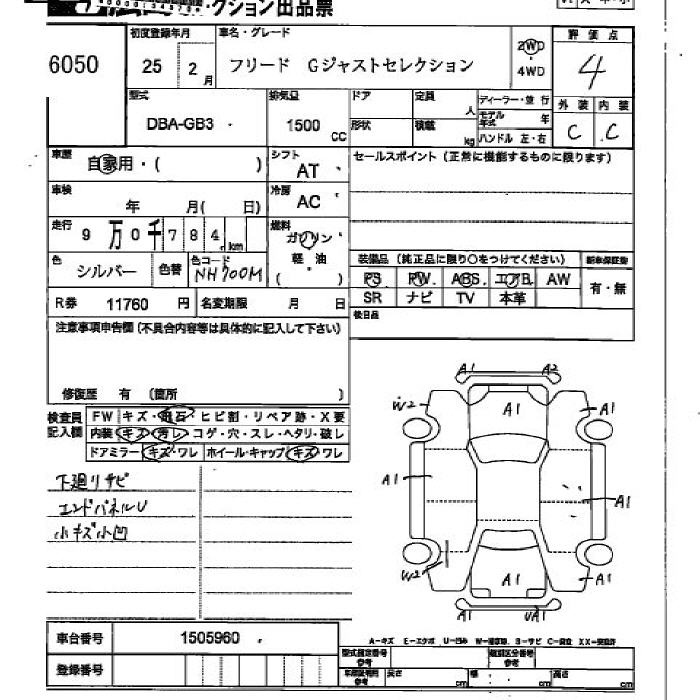 クション出品票
初度登録年月 車名・グレード 評価点
6050 25 2月 フリード Gジャストセレクション 2WD ・ 4WD 4
型式 排気量 ドア 定員 ディーラー・並行 外装 内装
DBA-GB3 1500 CC 形状 積載 人 kg モデル年式 年 ハンドル 左・右 C C
車歴 自家用・( ) シフト AT セールスポイント(正常に機能するものに限ります)
車検 年 月( 日) 冷房 AC
走行 9万0千784km 燃料 ガソリン
色 シルバー 色替 色コード NH700M 軽油 ( ) 装備品(純正品に限り○をつけてください) 新車保証書
PS PW ABS エアB AW 有・無
R券 11760円 名変期限 月 日 SR ナビ TV 本革
注意事項申告欄(不具合内容等は具体的に記入して下さい) 後日品
修復歴 有 (箇所 )
検査員記入欄 FW キズ・飛石・ヒビ割・リペア跡・X要
内装 キズ・汚レ・コゲ・穴・スレ・ヘタリ・破レ
ドアミラー キズ・ワレ ホイール・キャップ キズ・ワレ
下廻りサビ
エンドパネルU
小キズ小凹
A1 A2
W2 A1 A1
A1 A1
W2 A1 A1
A1 UA1
A-キズ E-エクボ U-凹み W-補修跡 S-サビ C-腐食 XX-交換済
車台番号 1505960
型式指定番号 参考 類別区分番号 参考
登録番号 参考 長さ cm 幅 cm 高さ cm